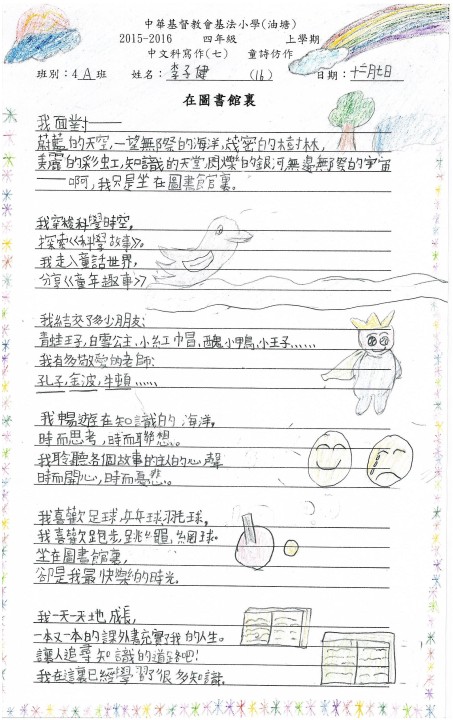 中華基督教會基法小學(油塘)
2015-2016 四年級 上學期
中文科寫作(七) 童詩仿作
班別：4A班 姓名：李子健 (16) 日期：十二月七日
在圖書館裏
我面對——
蔚藍的天空，一望無際的海洋，茂密的樹林，
美麗的彩虹，知識的天空，閃爍的銀河，無邊無際的宇宙
——啊，我只是坐在圖書館裏。
我穿梭科學時空，
探索《科學故事》。
我走入童話世界，
分享《童年趣事》
我結交了多少朋友：
青蛙王子，白雪公主，小紅巾冒，醜小鴨，小王子……
我有多敬愛的老師：
孔子，金波，牛頓……
我暢遊在知識的海洋，
時而思考，時而聯想。
我聆聽各個故事的主人的心聲
時而開心，時而憂悲。
我喜歡足球，乒乓球，羽毛球，
我喜歡跑步，跳繩，網球。
坐在圖書館裏，
卻是我最快樂的時光。
我一天一天地成長，
一本又一本的課外書充實了我的人生。
讓人追尋知識的道路吧！
我在這裏已經學習了很多知識。